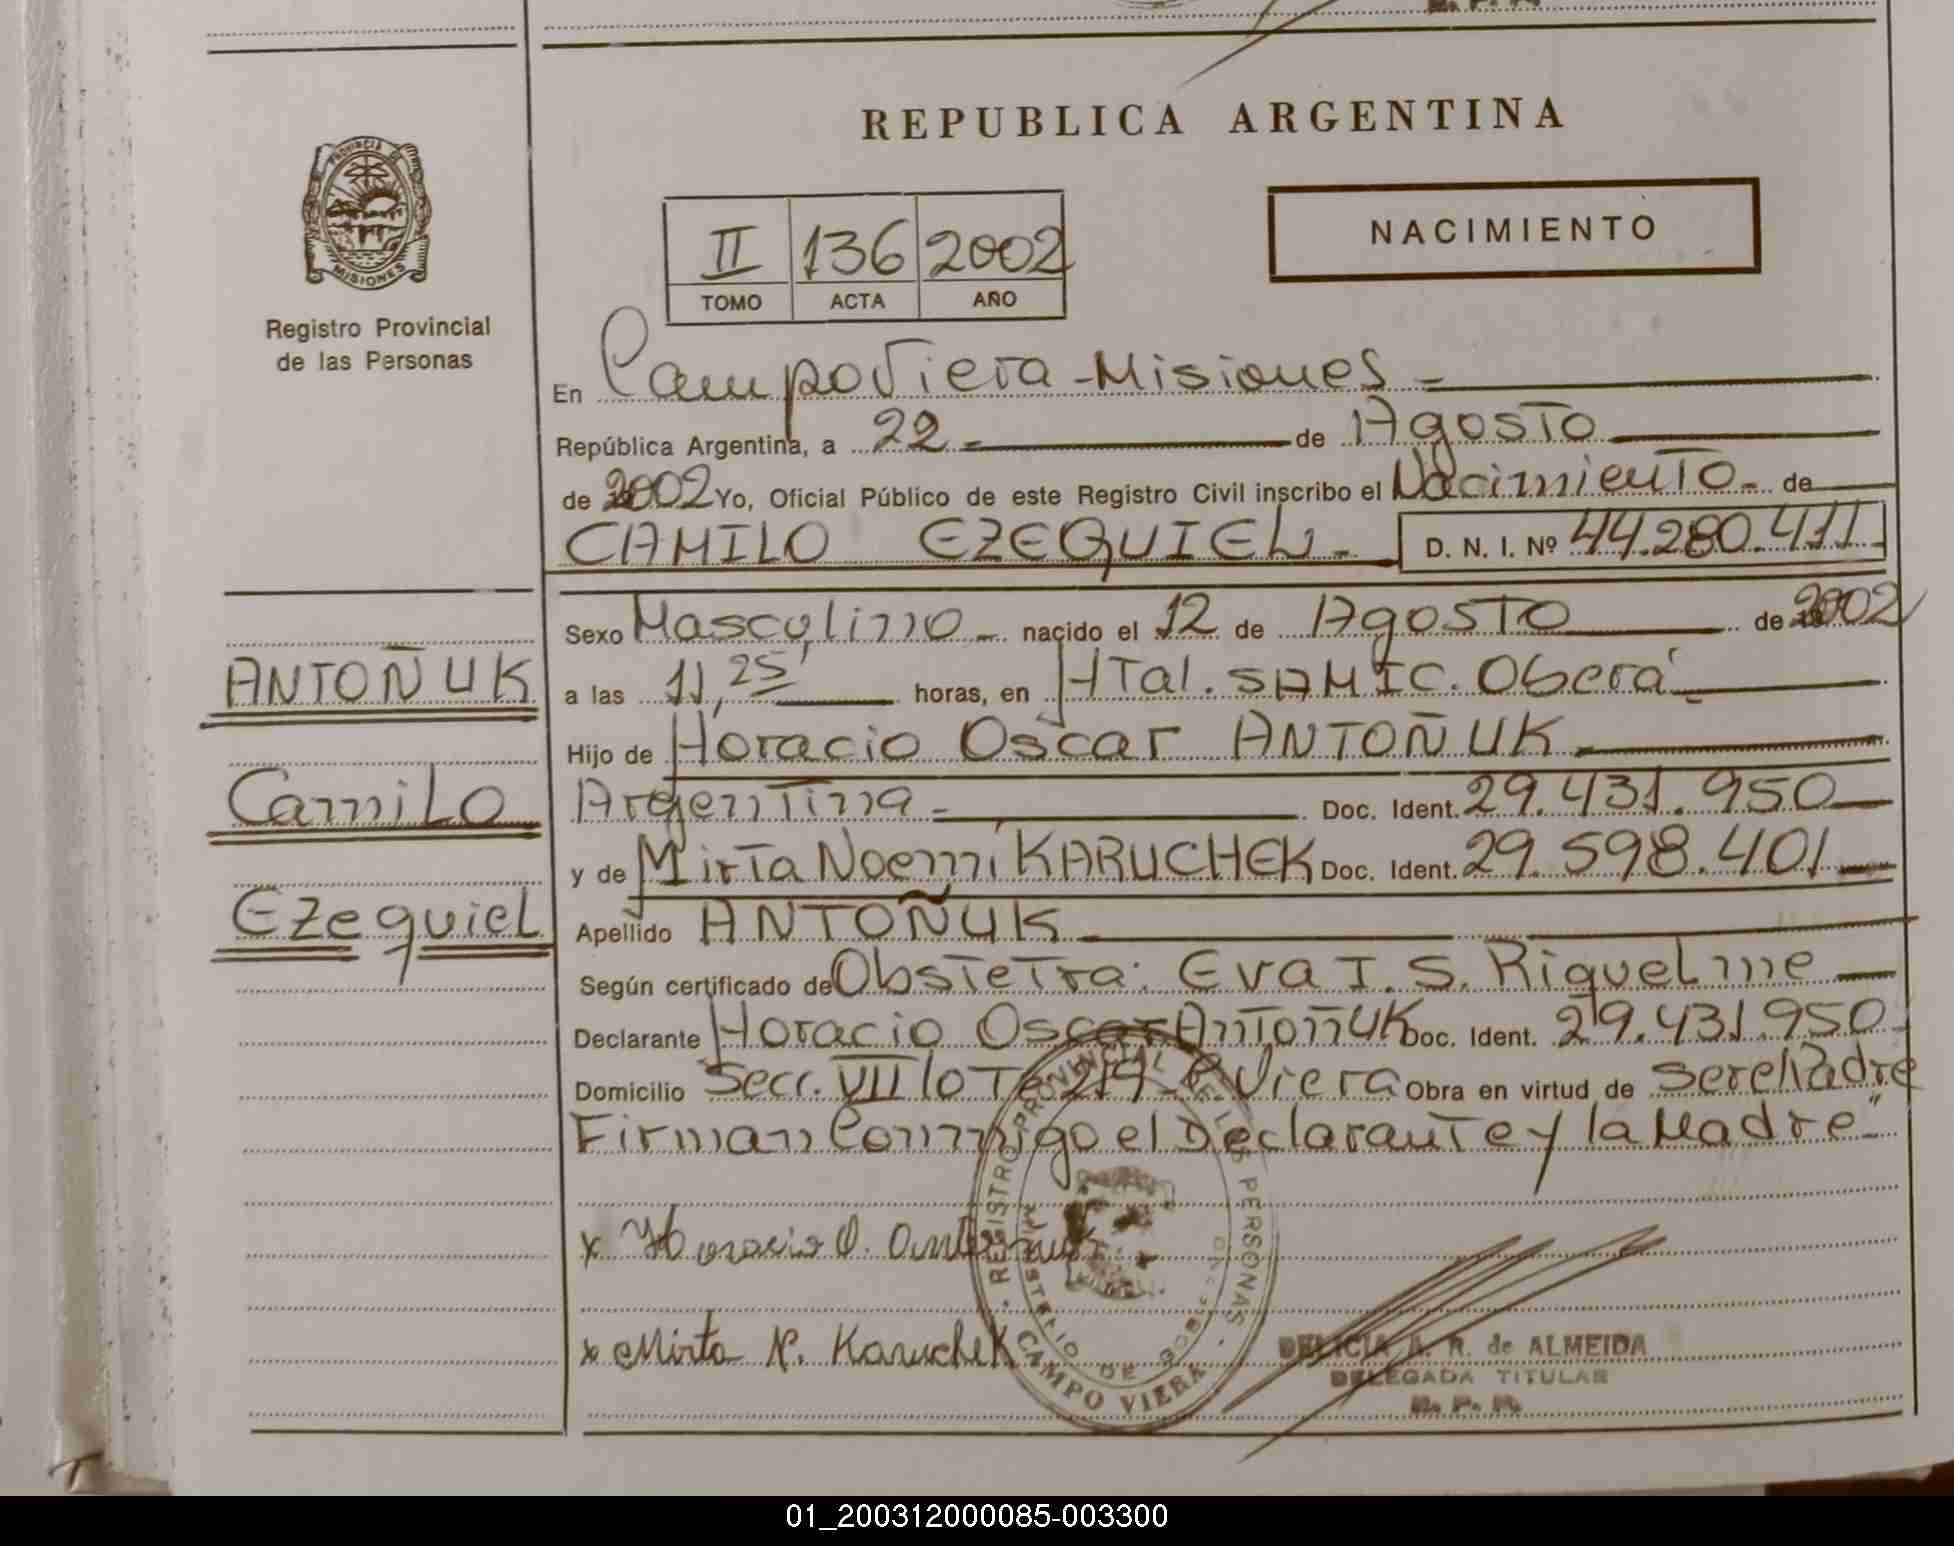 R. P. P.
REPUBLICA ARGENTINA
PROVINCIA DE
MISIONES
Registro Provincial
de las Personas
II 136 2002
TOMO ACTA AÑO
NACIMIENTO
En Campo Viera - Misiones -
República Argentina, a 22 - de Agosto
de 2002 Yo, Oficial Público de este Registro Civil inscribo el Nacimiento - de
CAMILO EZEQUIEL - D. N. I. Nº 44.280.411
Sexo Masculino - nacido el 12 de Agosto de 2002
a las 11,25' horas, en Htal. SAMIC. Oberá -
Hijo de Horacio Oscar ANTOÑUK -
Argentina - Doc. Ident. 29.431.950
y de Mirta Noemí KARUCHEK Doc. Ident. 29.598.401
Apellido ANTOÑUK
Según certificado de Obstetra: Eva I. S. Riquelme
Declarante Horacio Oscar Antoñuk Doc. Ident. 29.431.950
Domicilio Secc. VII lote 219 - C. Viera Obra en virtud de ser el Padre
Firman Conmigo el Declarante y la Madre"
ANTOÑUK
Camilo
Ezequiel
x Horacio O. Antoñuk
x Mirta N. Karuchek
REGISTRO PROVINCIAL DE LAS PERSONAS
MINISTERIO DE GOBIERNO
CAMPO VIERA
DELICIA A. R. de ALMEIDA
DELEGADA TITULAR
R. P. P.
01_200312000085-003300